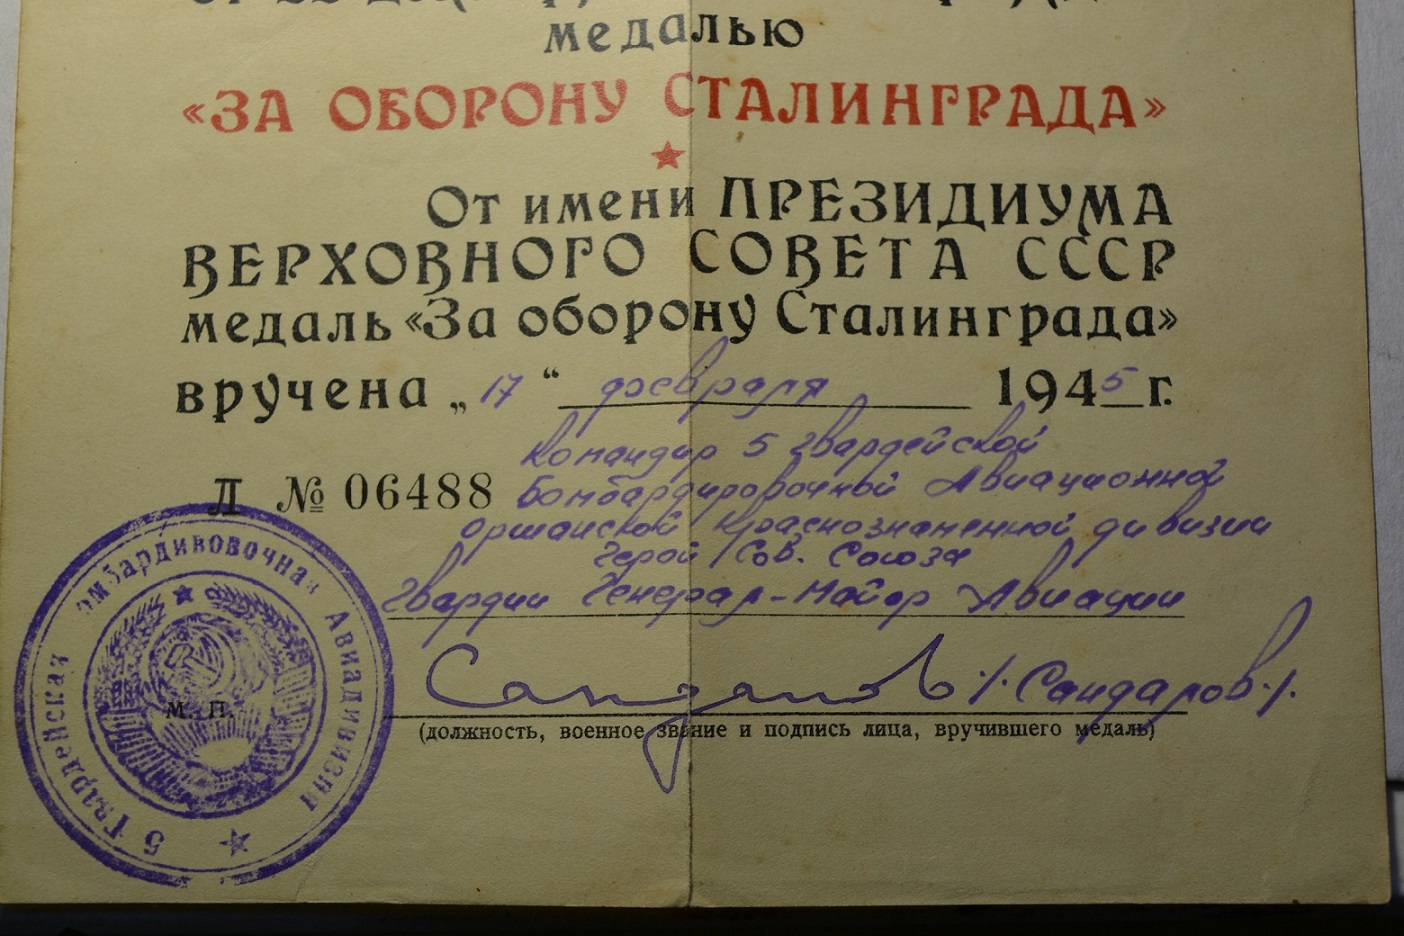 медалью
«ЗА ОБОРОНУ СТАЛИНГРАДА»
От имени ПРЕЗИДИУМА
ВЕРХОВНОГО СОВЕТА СССР
медаль «За оборону Сталинграда»
вручена „17“ февраля 1945 г.
Командир 5 гвардейской
Л № 06488 Бомбардировочной Авиационной
Оршанской Краснознаменной дивизии
Герой Сов. Союза
Гвардии Генерал-Майор Авиации
Сандалов /.Сандалов./.
(должность, военное звание и подпись лица, вручившего медаль)
М. П.
5 Гвардейская Бомбардировочная Авиадивизия